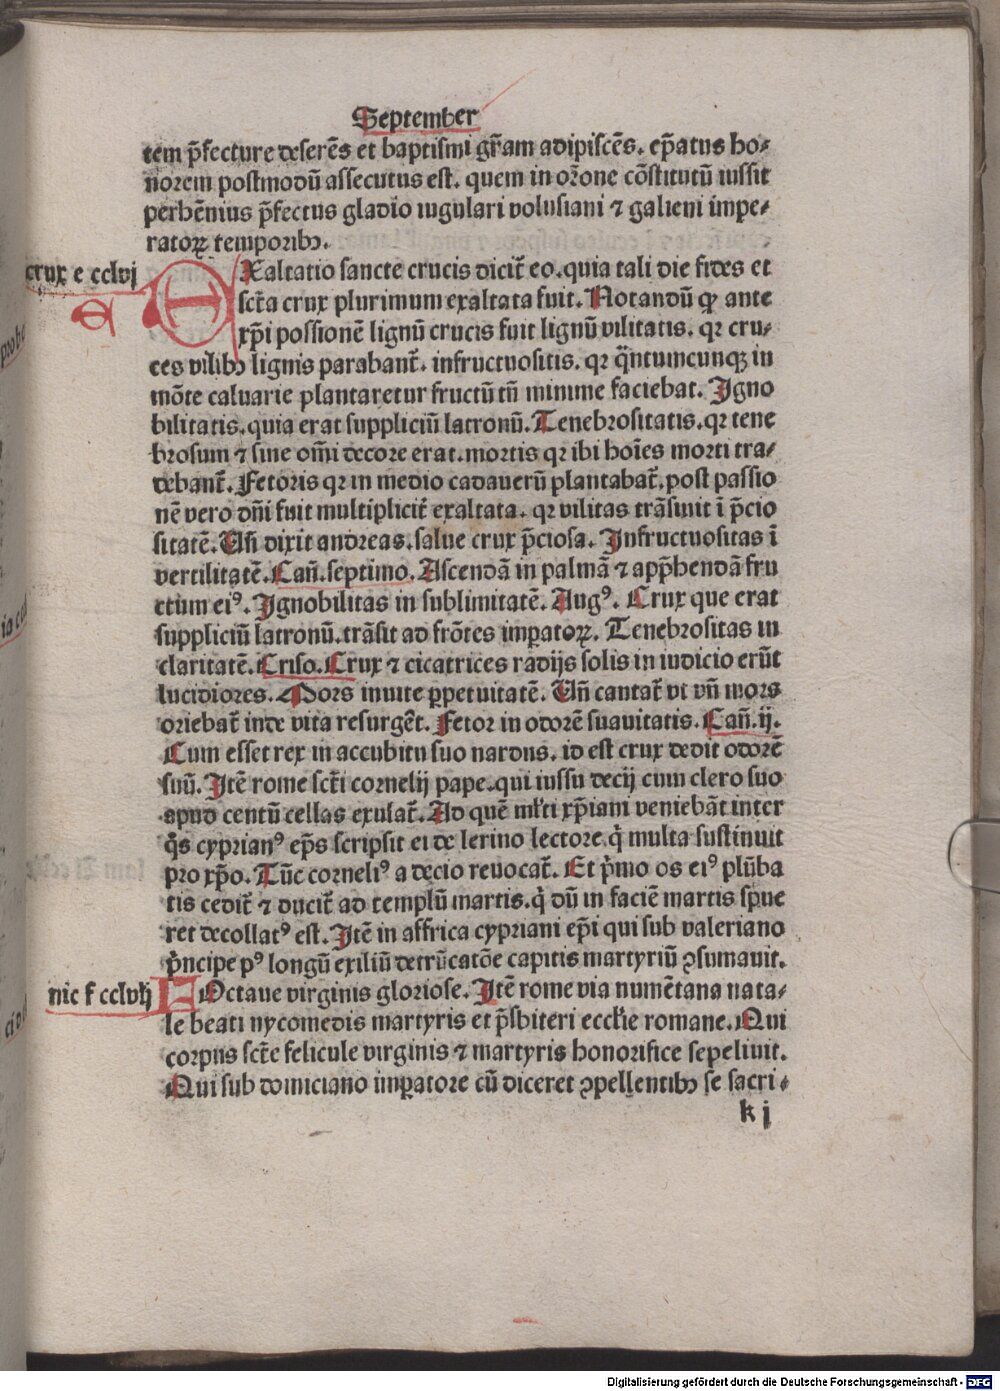 September
tem p̄fecture deserēs et baptismi gr̄am adipiscēs. ep̄atus ho⸗
norem postmodū assecutus est. quem in or̄one cōstitutū iussit
perhēnius p̄fectus gladio iugulari volusiani ⁊ galieni impe⸗
ratoꝝ temporibꝫ.
crux e cclvj
EXaltatio sancte crucis dicit̄ eo. quia tali die fides et
sct̄a crux plurimum exaltata fuit. Notandū ꝙ ante
xp̄i possionē lignū crucis fuit lignū vilitatis. qꝛ cru⸗
ces vilibꝫ lignis parabant̄. infructuositis. qꝛ q̄ntumcunqꝫ in
mōte caluarie plantaretur fructū tn̄ minime faciebat. Igno
bilitatis. quia erat suppliciū latronū. Tenebrositatis. qꝛ tene
brosum ⁊ sine om̄i decore erat. mortis qꝛ ibi hoīes morti tra⸗
debant̄. Fetoris qꝛ in medio cadauerū plantabat̄. post passio
nē vero dn̄i fuit multiplicit̄ exaltata. qꝛ vilitas trāsiuit ī p̄cio
sitatē. Vn̄ dixit andreas. salue crux p̄ciosa. Infructuositas ī
vertilitatē. Can̄. septimo. Ascendā in palmā ⁊ app̄hendā fru
ctum eiꝰ. Ignobilitas in sublimitatē. Augꝰ. Crux que erat
suppliciū latronū. trāsit ad frōtes imꝑatoꝝ. Tenebrositas in
claritatē. Criso. Crux ⁊ cicatrices radijs solis in iudicio erūt
lucidiores. Mors in vite ꝑpetuitatē. Vn̄ cantat̄ vt vn̄ mors
oriebat̄ inde vita resurgēt. Fetor in odorē suauitatis. Can̄. ij.
Cum esset rex in accubitu suo nardus. id est crux dedit odorē
suū. Itē rome sct̄i cornelij pape. qui iussu decij cum clero suo
apud centū cellas exulat̄. Ad quē ml̄ti xp̄iani veniebāt inter
q̄s cyprianꝰ ep̄s scripsit ei de lerino lectore. q̇ multa sustinuit
pro xp̄o. Tūc corneliꝰ a decio reuocat̄. Et p̄mo os eiꝰ plūba
tis cedit̄ ⁊ ducit̄ ad templū martis. q̇ dū in faciē martis spue
ret decollatꝰ est. Itē in affrica cypriani ep̄i qui sub valeriano
p̄ncipe pꝰ longū exiliū detrūcatōe capitis martyriū ꝯsumauit.
nic f cclvij
Octaue virginis gloriose. Itē rome via numētana nata⸗
le beati nycomedis martyris et p̄sbiteri eccl̄ie romane. Qui
corpus sct̄e felicule virginis ⁊ martyris honorifice sepeliuit.
Qui sub domiciano imꝑatore cū diceret ꝯpellentibꝫ se sacri⸗
k j
Digitalisierung gefördert durch die Deutsche Forschungsgemeinschaft - DFG